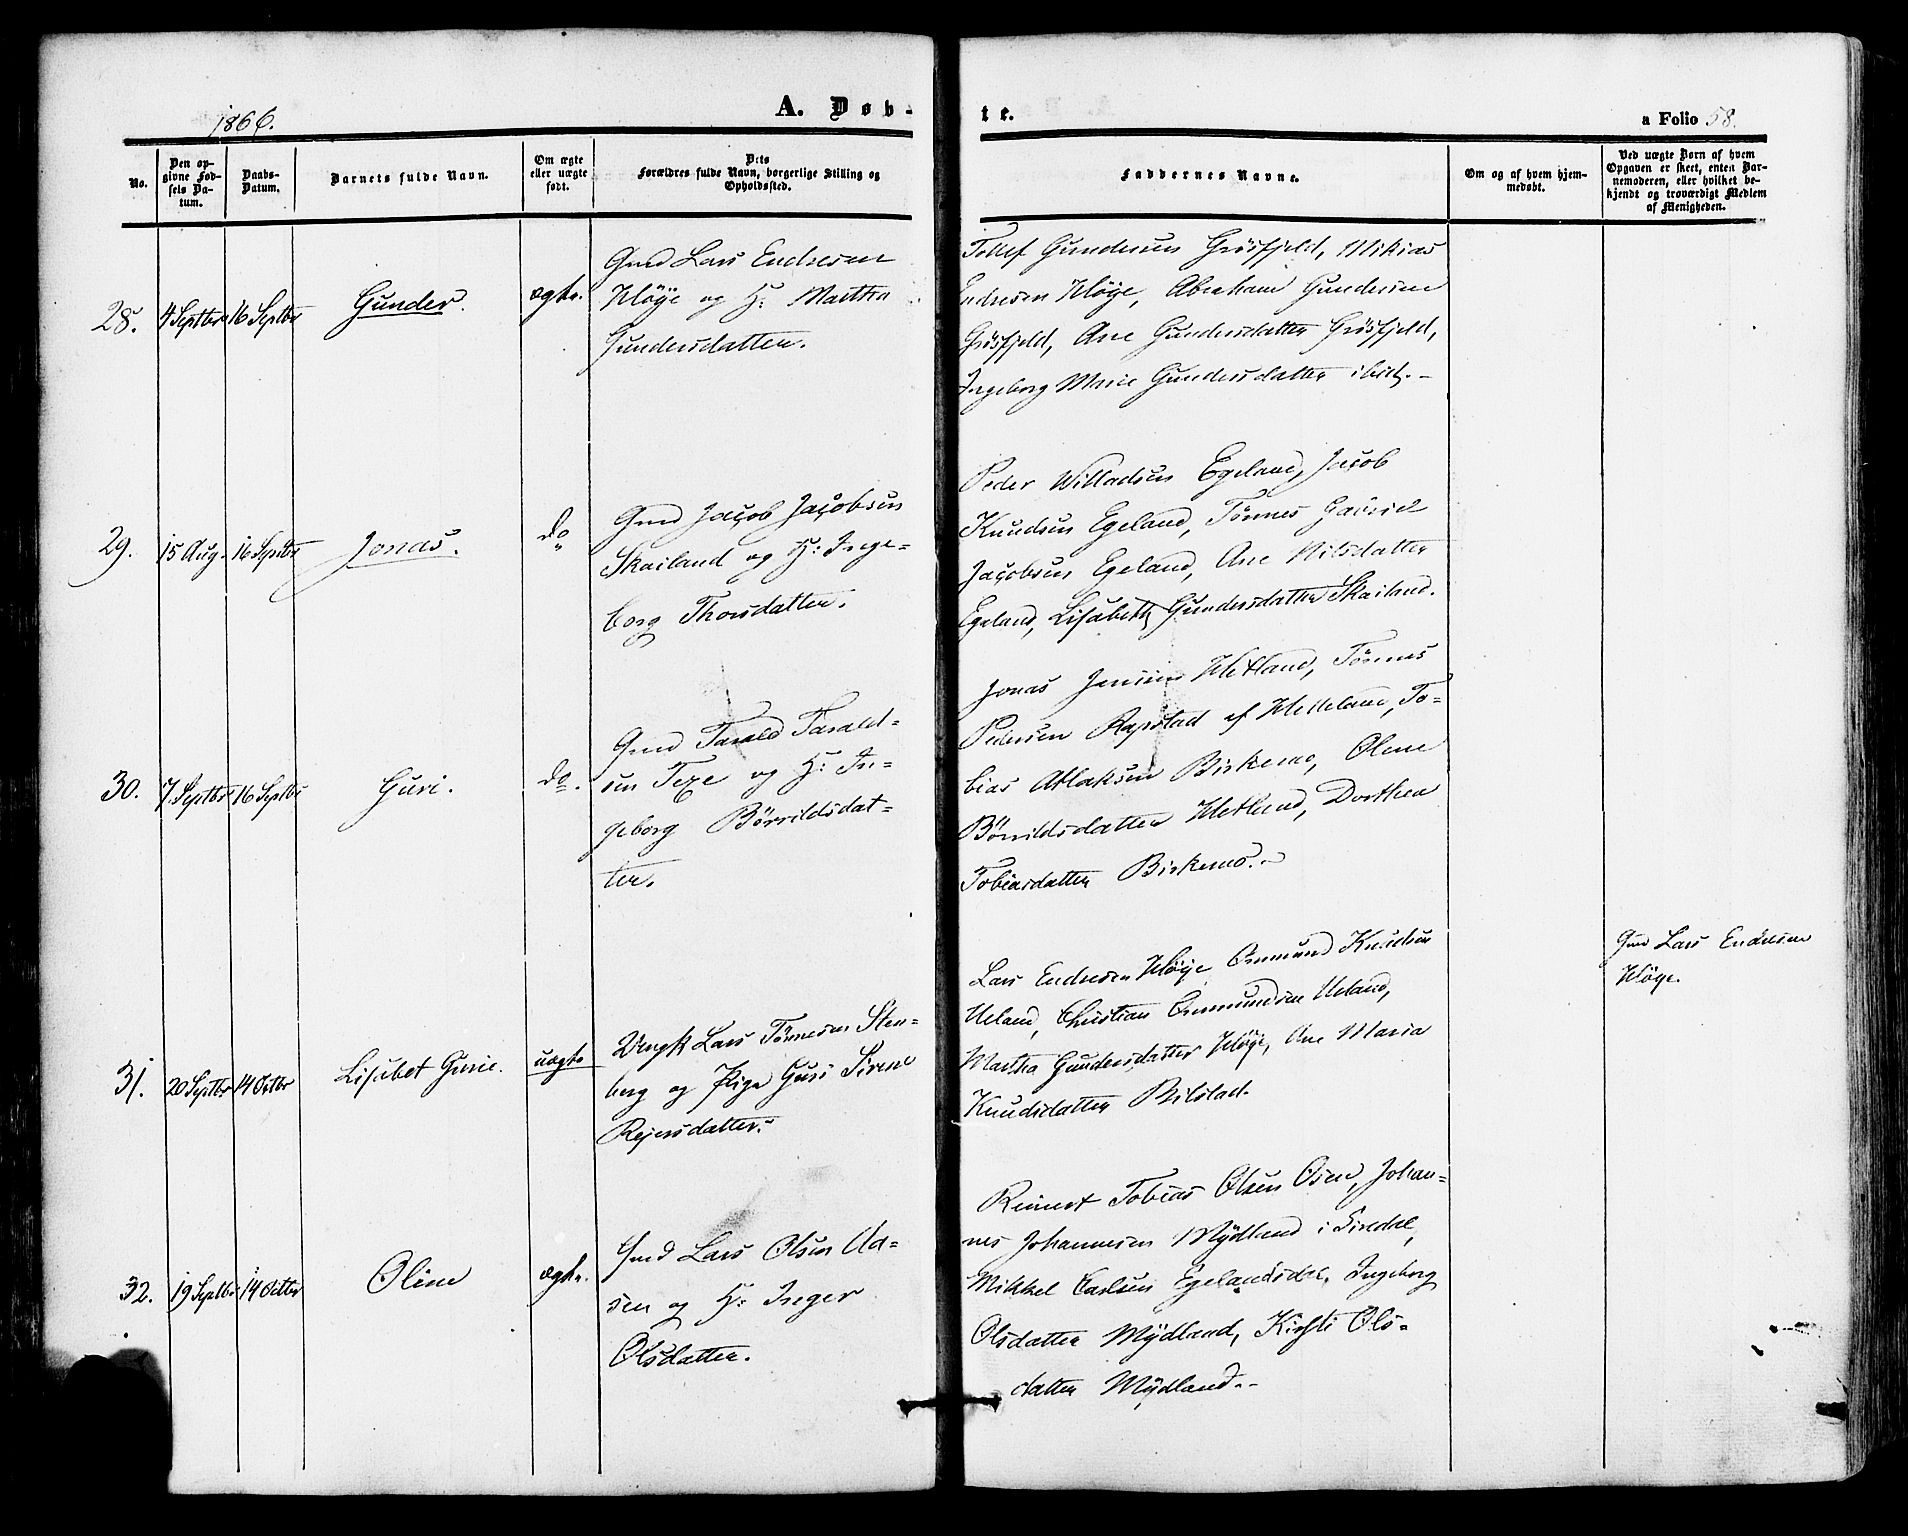 1866.
A. Døb-
te.
a Folio 58.
No.
Den op-
givne Fød-
sels Da-
tum.
Daabs-
Datum.
Barnets fulde Navn.
Om ægte
eller uægte
født.
Dets
Forældres fulde Navn, borgerlige Stilling og
Opholdssted.
Faddernes Navne.
Om og af hvem hjem-
medøbt.
Ved uægte Børn af hvem
Opgaven er skeet, enten Bar-
nemoderen, eller hvilket be-
kjendt og troværdigt Medlem
af Menigheden.
28.
4 Septbr
16 Septbr
Gunder.
ægte.
Gmd Lars Endresen
Høÿe og H: Martha
Gundersdatter.
Tollef Gundersen Grøsfjeld, Mikias
Endresen Høÿe, Abraham Gundersen
Grøsfjeld, Ane Gundersdatter Grøsfjeld,
Ingeborg Marie Gundersdatter ibid. -
29.
15 Aug.
16 Septbr
Jonas.
do
Gmd Jacob Jacobsen
Skailand og H: Inge-
borg Thorsdatter.
Peder Willadsen Egeland, Jacob
Knudsen Egeland, Tønnes Gabriel
Jacobsen Egeland, Ane Nilsdatter
Egeland, Lisabeth Gundersdatter Skailand.
30.
7 Septbr
16 Septbr
Guri.
do.
Gmd Tarald Tarald-
sen Texe og H: In-
geborg Børrildsdat-
ter.
Jonas Jensen Hetland, Tønnes
Pedersen Rapstad af Helleland, To-
bias Atlaksen Birkemo, Olene
Børrildsdatter Hetland, Dorthea
Tobiasdatter Birkemo. -
31.
20 Septbr
14 Octbr
Lisabet Gurie.
uægte
Ungk Lars Tønnesen Sten-
berg og Pige Guri Sirene
Rejersdatter.
Lars Endresen Høÿe, Ommund Knudsen
Ueland, Christian Ommundsen Ueland,
Martha Gundersdatter Høÿe, Ane Maria
Knudsdatter Bilstad.
Gmd Lars Endresen
Høÿe.
32.
19 Septbr
14 Octbr
Oline
ægte.
Gmd Lars Olsen Aa-
sen og H: Inger
Olsdatter.
Reinert Tobias Olsen Osen, Johan-
nes Johannesen Mÿdland i Siredal,
Mikkel Carlsen Egelandsdal, Ingeborg
Olsdatter Mÿdland, Kirsti Ols-
datter Mÿdland. -